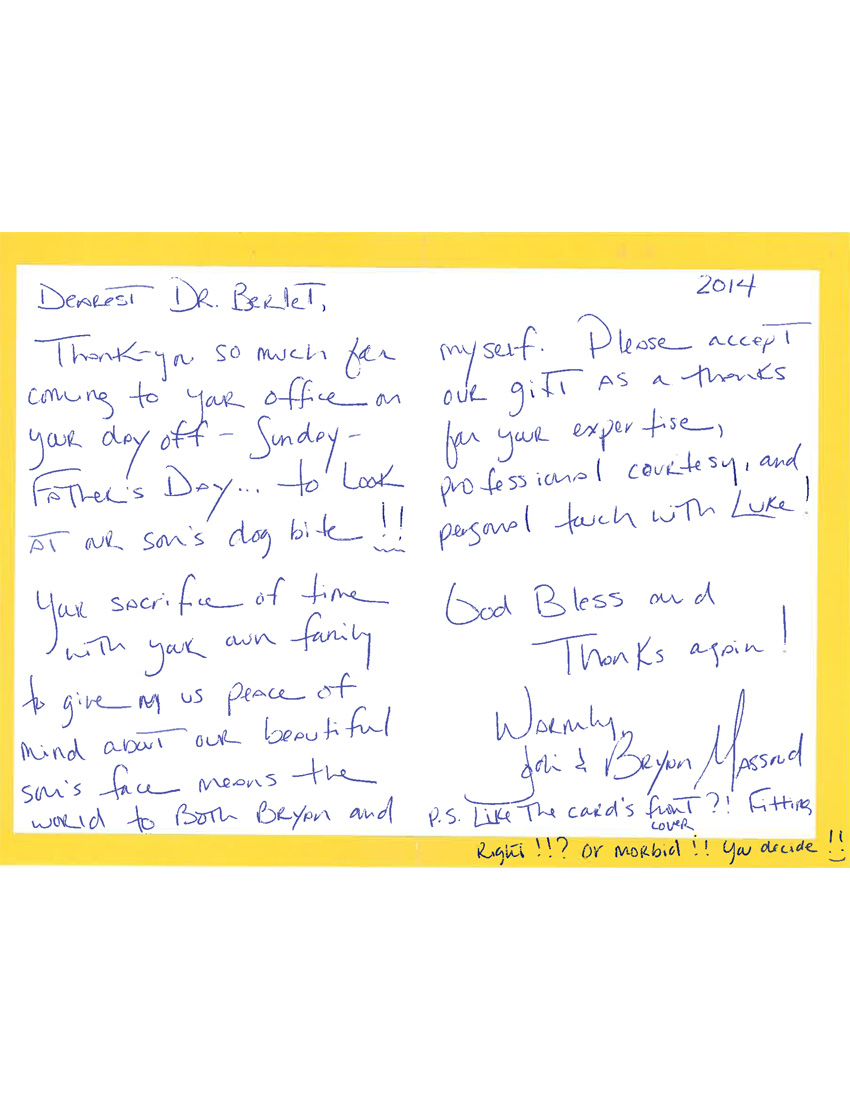 Dearest Dr. Berlet,
Thank-you so much for
coming to your office on
your day off - Sunday -
Father's Day... to look
at our son's dog bite!!
Your sacrifice of time
with your own family
to give us peace of
mind about our beautiful
son's face means the
world to Both Bryan and
2014
myself. Please accept
our gift as a thanks
for your expertise,
professional courtesy, and
personal touch with Luke!
God Bless and
Thanks again!
Warmly,
& Bryan Massoud
P.S. Like The card's front ?! Fitting
cover
Right!!? Or morbid!! You decide!!